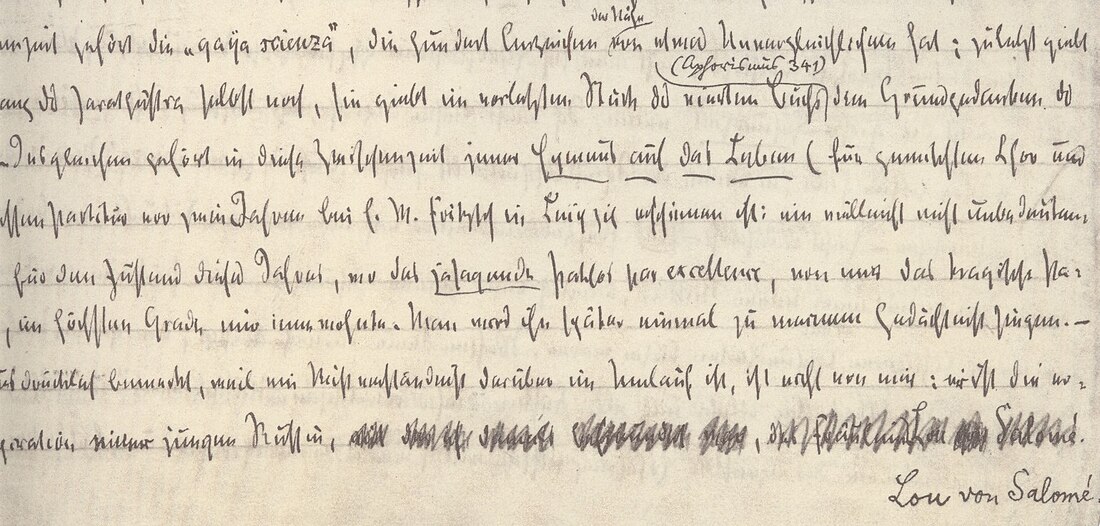 der Nähe
die „gaya scienza“, die hundert Anzeichen von etwas Unvergleichlichem hat; zuletzt giebt
(Aphorismus 341)
des Zarathustra selbst noch, sie giebt im vorletzten Stück des vierten Buchs den Grundgedanken des
Insgleichen gehört in diese Zwischenzeit jener Hymnus auf das Leben (für gemischten Chor und
Partitur vor zwei Jahren bei E. W. Fritzsch in Leipzig erschienen ist: ein vielleicht nicht unbedeuten-
für den Zustand dieses Jahres, wo das jasagende Pathos par excellence, von mir das tragische Pa-
, im höchsten Grade mir innewohnte. Man wird ihn später einmal zu meinem Gedächtniß singen. —
bemerkt, weil ein Mißverständniß darüber im Umlauf ist, ist nicht von mir: er ist die er-
einer jungen Russin, Salomé.
Lou von Salomé.